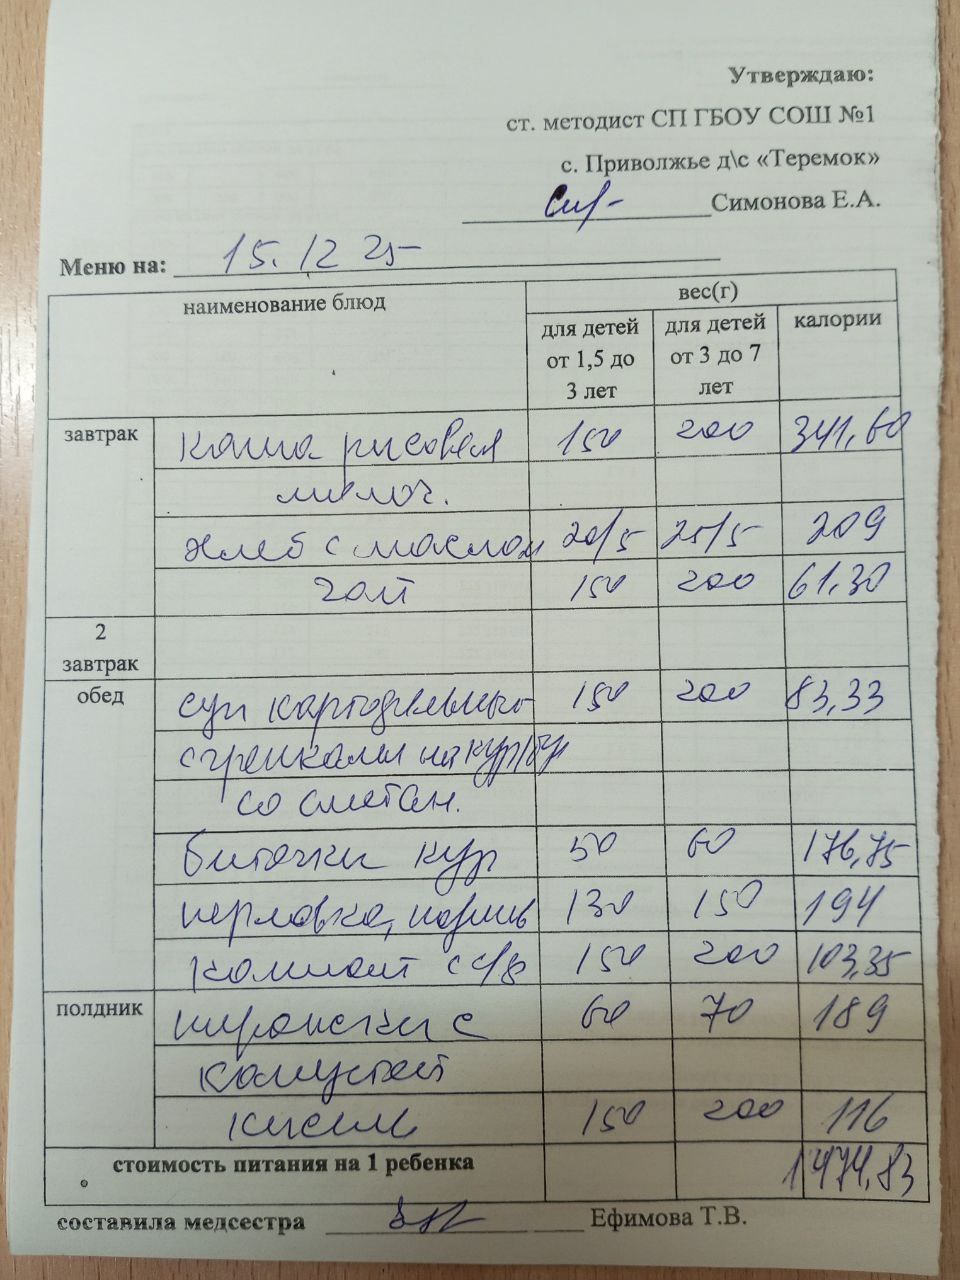 Утверждаю:
ст. методист СП ГБОУ СОШ №1
с. Приволжье д\с «Теремок»
Симонова Е.А.
Меню на: 15.12 25
наименование блюд вес(г)
для детей от 1,5 до 3 лет для детей от 3 до 7 лет калории
завтрак каша рисовая 150 200 341,60
молоч.
хлеб с маслом 20/5 25/5 209
чай 150 200 61,30
2 завтрак
обед суп картофельный 150 200 83,33
с гренками на кур/бул
со сметан.
биточки кур 50 60 176,75
перловка, подлив 130 150 194
компот с с/ф 150 200 103,35
полдник пирожки с 60 70 189
капустой
кисель 150 200 116
стоимость питания на 1 ребенка 1474,83
составила медсестра Ефимова Т.В.